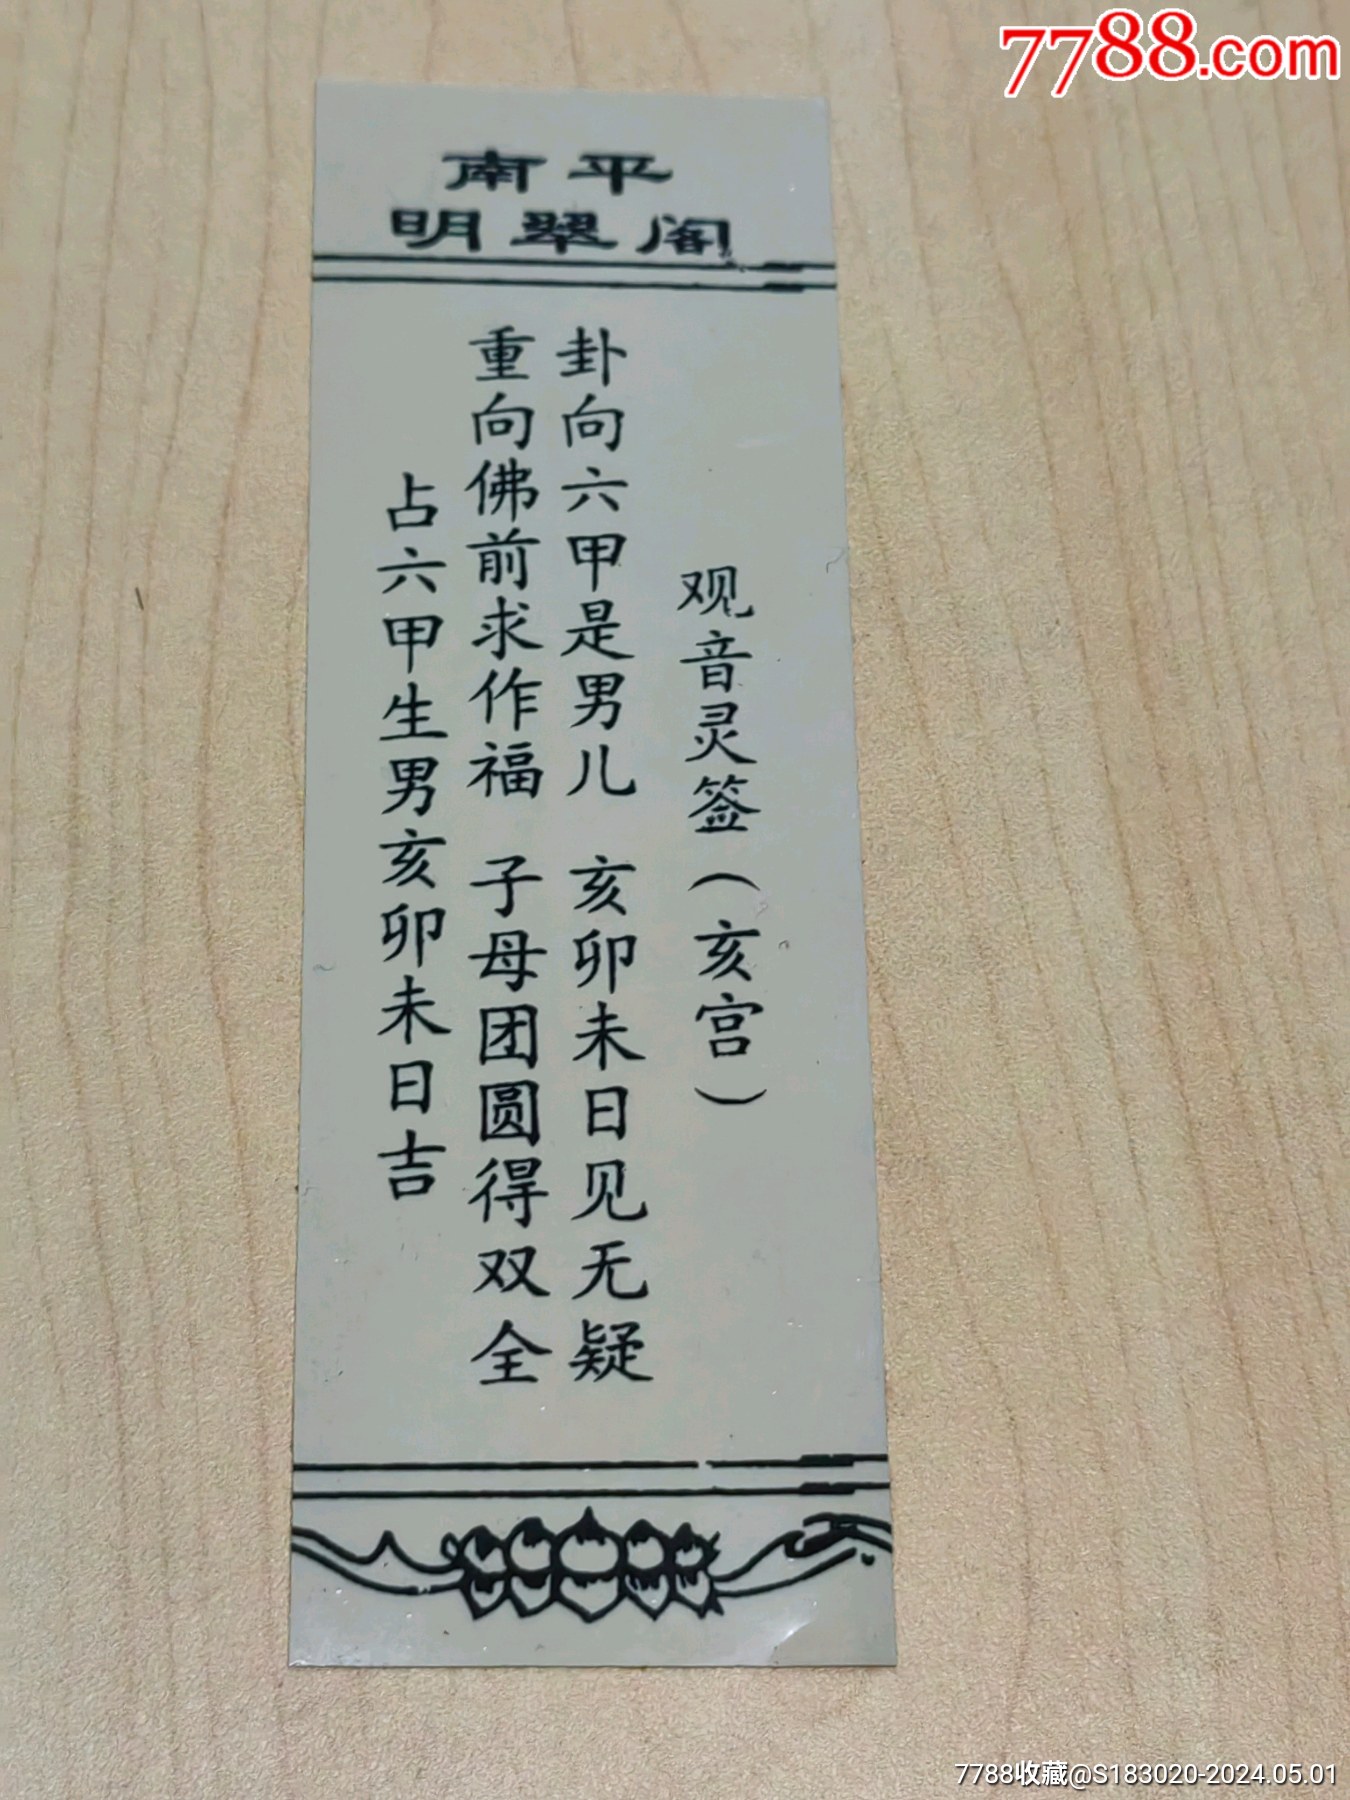 7788.com
南平
明翠阁
观音灵签（亥宫）
卦向六甲是男儿 亥卯未日见无疑
重向佛前求作福 子母团圆得双全
占六甲生男亥卯未日吉
7788收藏@S183020-2024.05.01